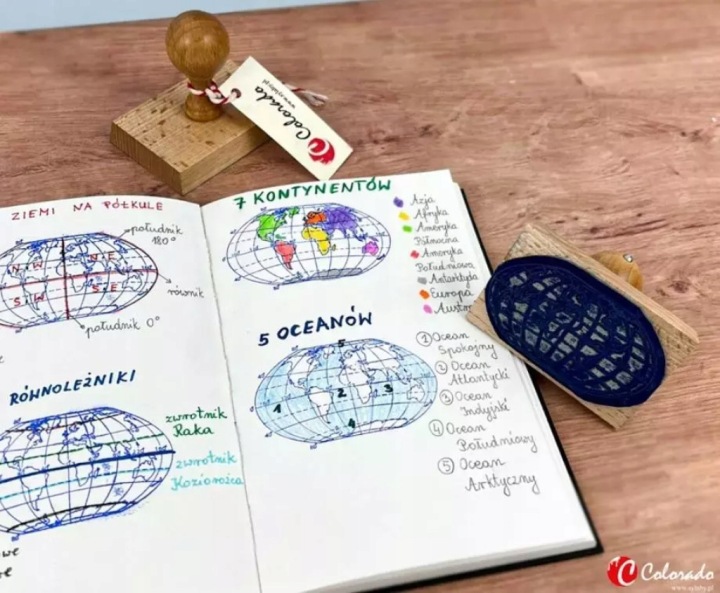 Colorado
ZIEMI NA PÓŁKULE
południk
180°
NW
NE
SW
SE
równik
południk 0°
RÓWNOLEŻNIKI
zwrotnik
Raka
zwrotnik
Koziorożca
7 KONTYNENTÓW
Azja
Afryka
Ameryka
Północna
Ameryka
Południowa
Antarktyda
Europa
Austr
5 OCEANÓW
5
1
2
3
4
① Ocean
Spokojny
② Ocean
Atlantycki
③ Ocean
Indyjski
④ Ocean
Południowy
⑤ Ocean
Arktyczny
Colorado